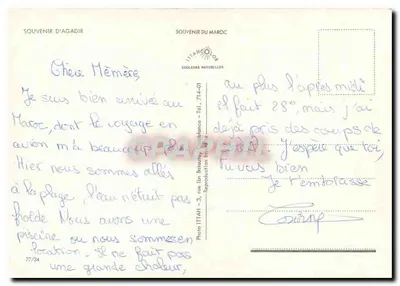 SOUVENIR D'AGADIR
SOUVENIR DU MAROC
ITTAHCOLOR
COULEURS NATURELLES
Chère Mémère,
Je suis bien arrivée au
Maroc, dont le voyage en
avion m'a beaucoup
Hier nous sommes allés
à la plage, l'eau n'était pas
froide Nous avons une
piscine ou nous sommes en
location. Il ne fait pas
une grande chaleur,
77/24
Photo ITTAH - 3, rue
au plus l'après midi
il fait 28°, mais j'ai
déjà pris des coups de
J'espère que toi,
tu vas bien
Je t'embrasse